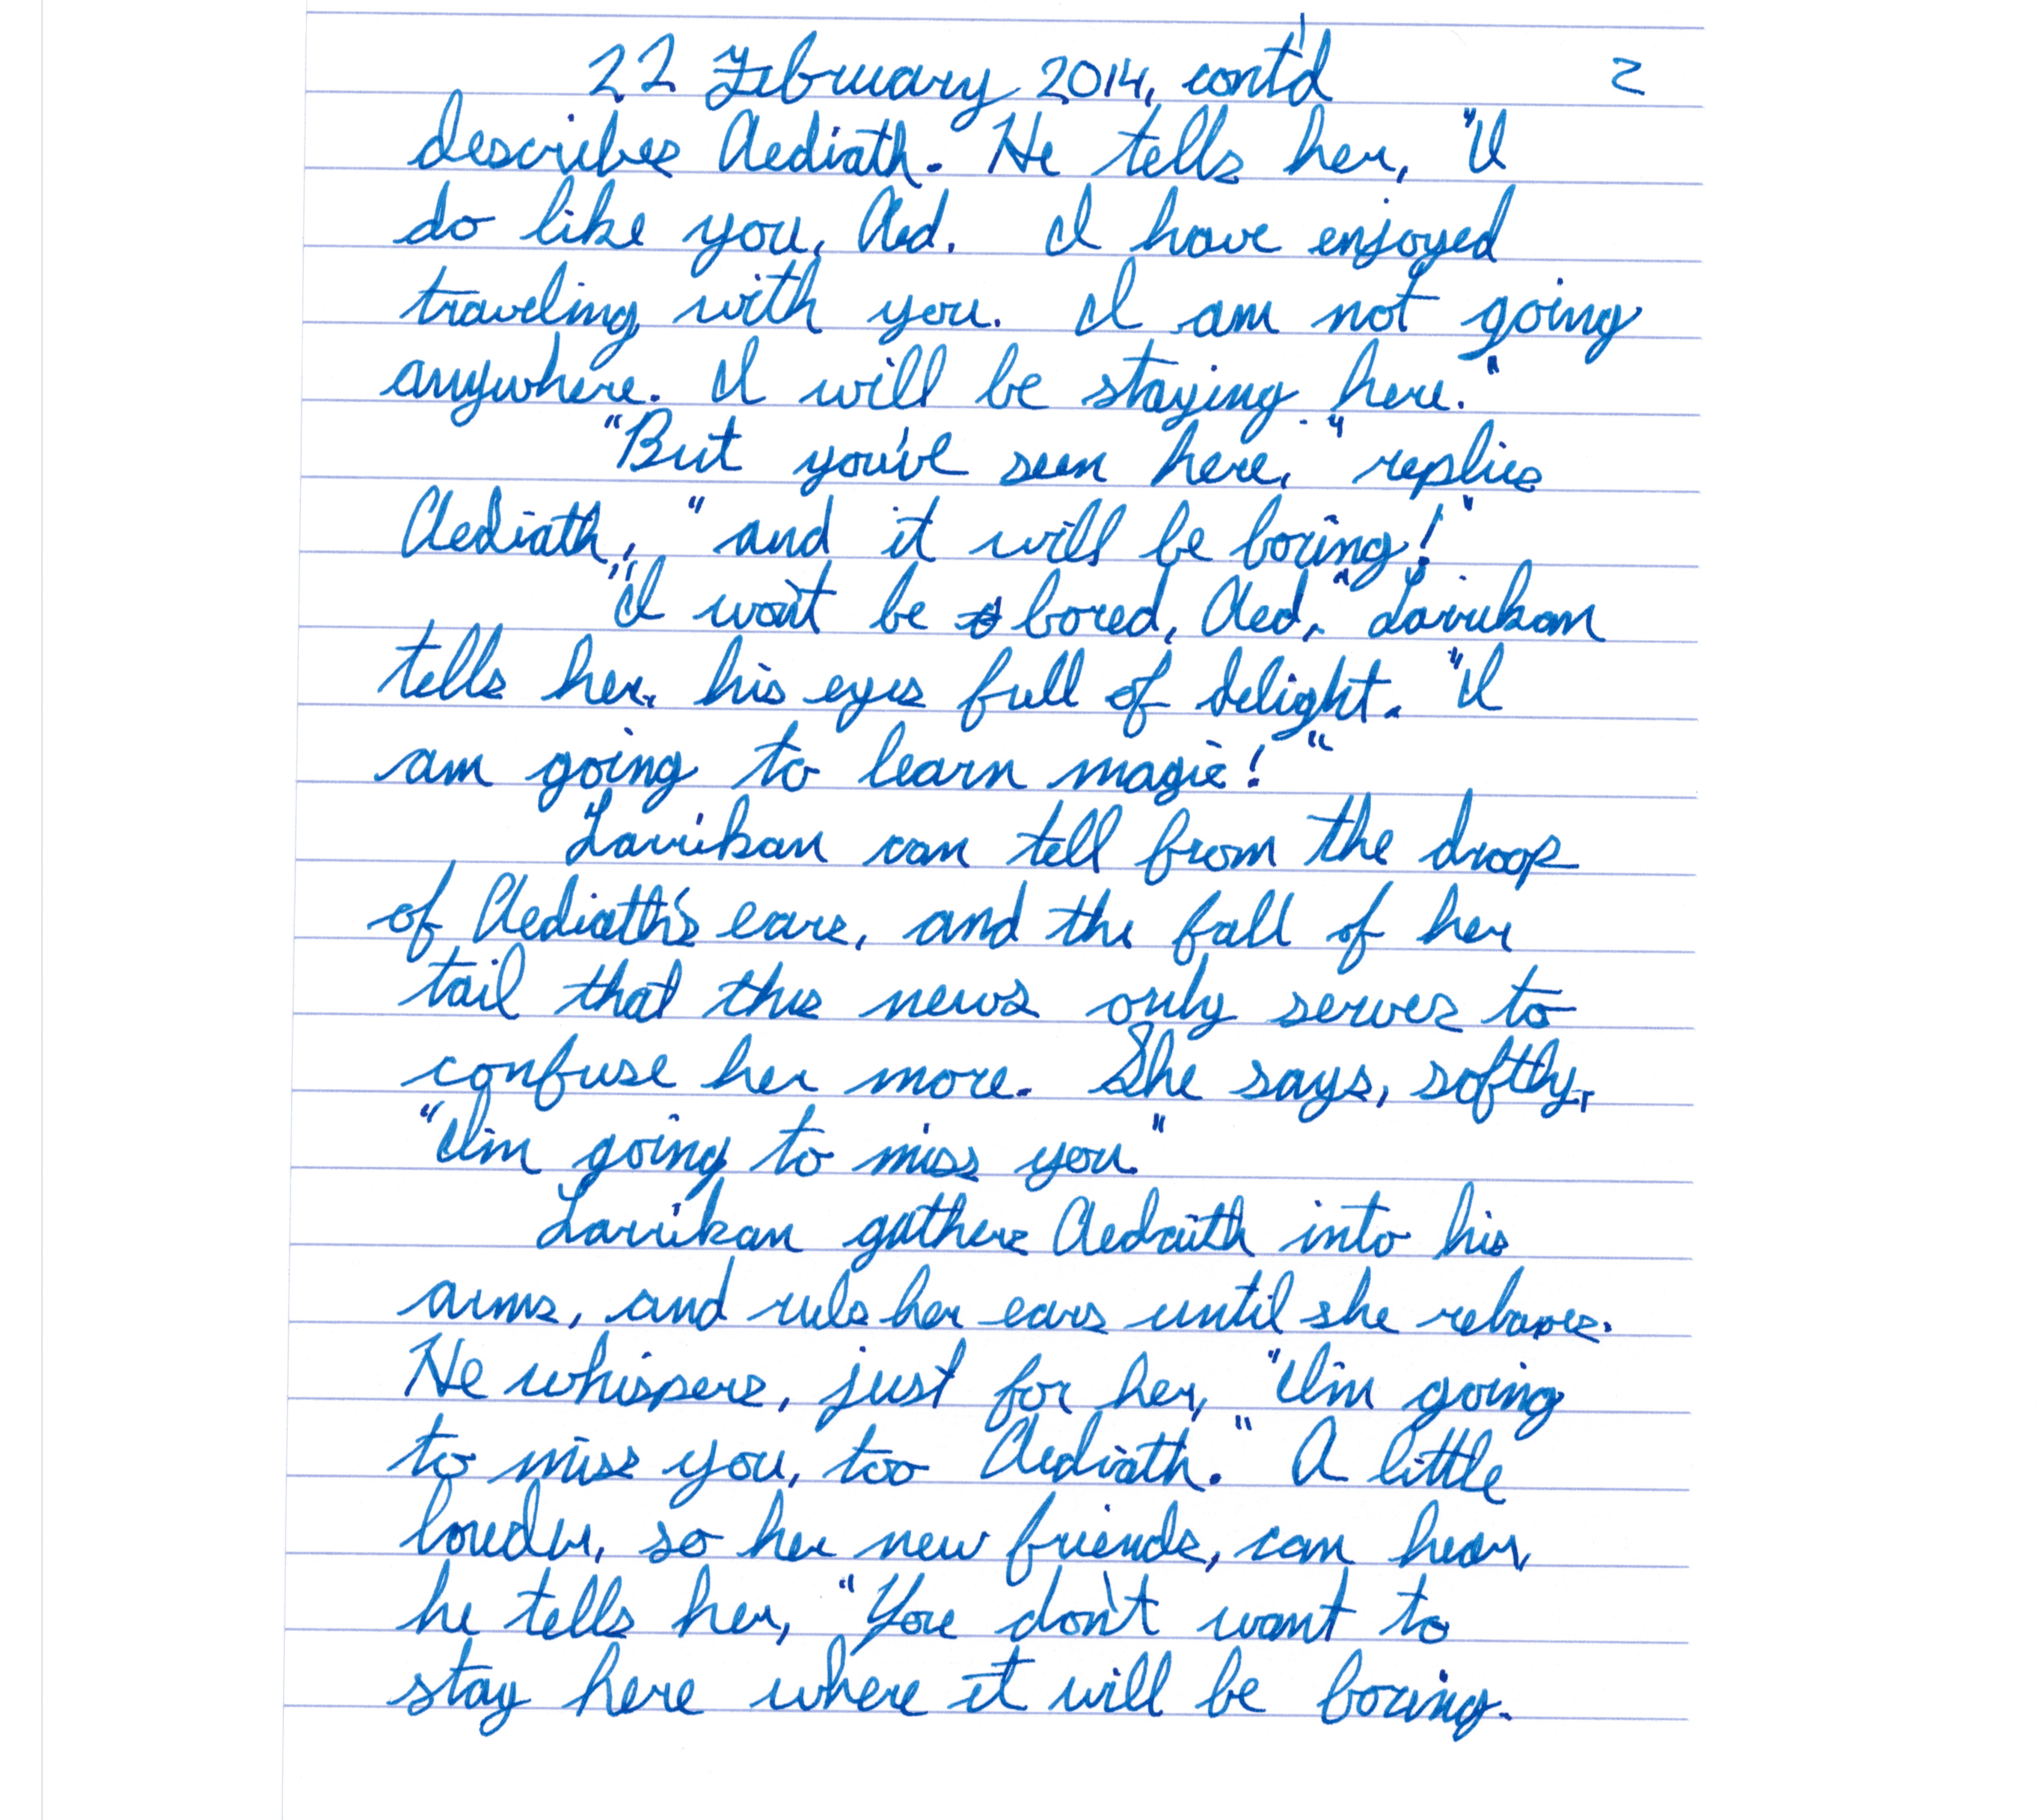 22 February 2014, cont'd 2
describes Aediath. He tells her, "I
do like you, Aed. I have enjoyed
traveling with you. I am not going
anywhere. I will be staying here."
"But you've seen here," replies
Aediath, "and it will be boring!"
"I won't be bored, Aed," Larrikan
tells her, his eyes full of delight. "I
am going to learn magic!"
Larrikan can tell from the droop
of Aediath's ears, and the fall of her
tail that this news only serves to
confuse her more. She says, softly,
"I'm going to miss you"
Larrikan gathers Aediath into his
arms, and rubs her ears until she relaxes.
He whispers, just for her, "I'm going
to miss you, too Aediath." A little
louder, so her new friends, can hear,
he tells her, "You don't want to
stay here where it will be boring.